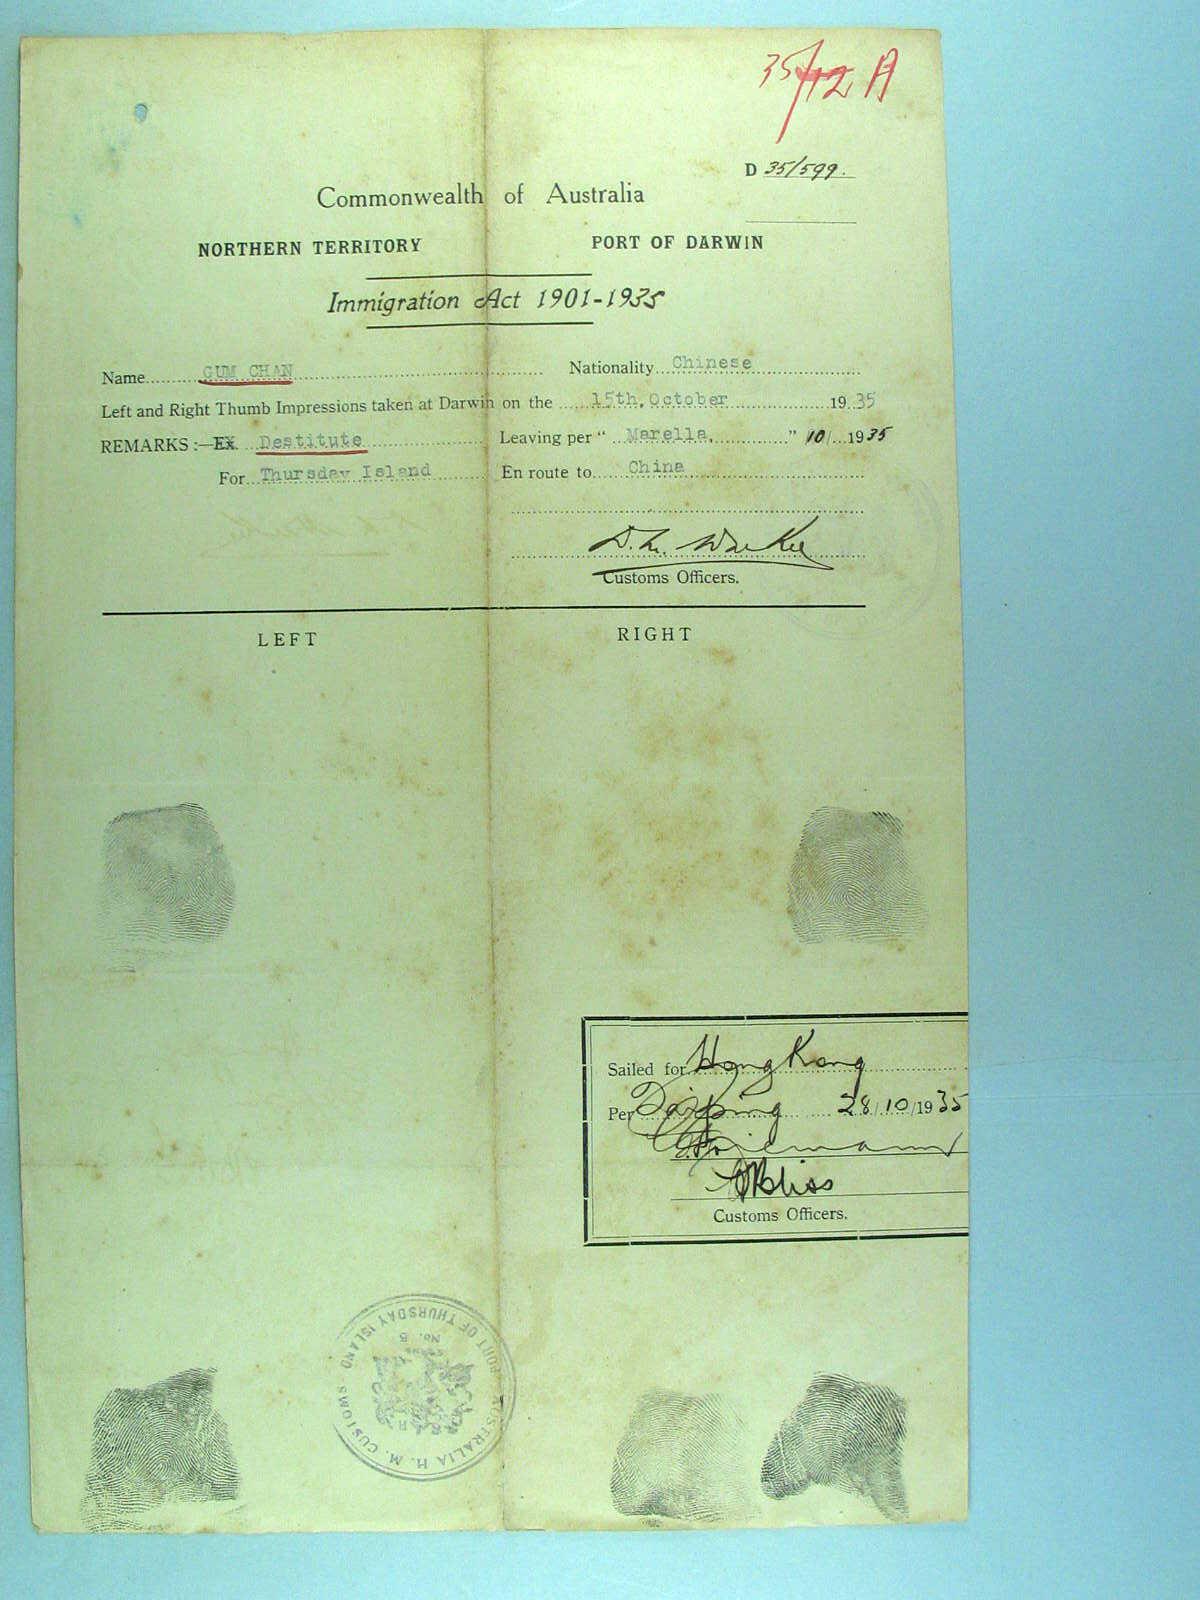 35/12 A
D 35/599.
Commonwealth of Australia
NORTHERN TERRITORY PORT OF DARWIN
Immigration Act 1901-1935
Name GUM CHAN Nationality Chinese
Left and Right Thumb Impressions taken at Darwin on the 15th. October 1935
REMARKS :—Ex Destitute Leaving per " Marella. " 10/ 1935
For Thursday Island En route to China
Customs Officers.
LEFT RIGHT
Sailed for Hong Kong
Per Taiping 28/10/1935
Bliss
Customs Officers.
AUSTRALIA H. M. CUSTOMS PORT OF THURSDAY ISLAND
No. 5